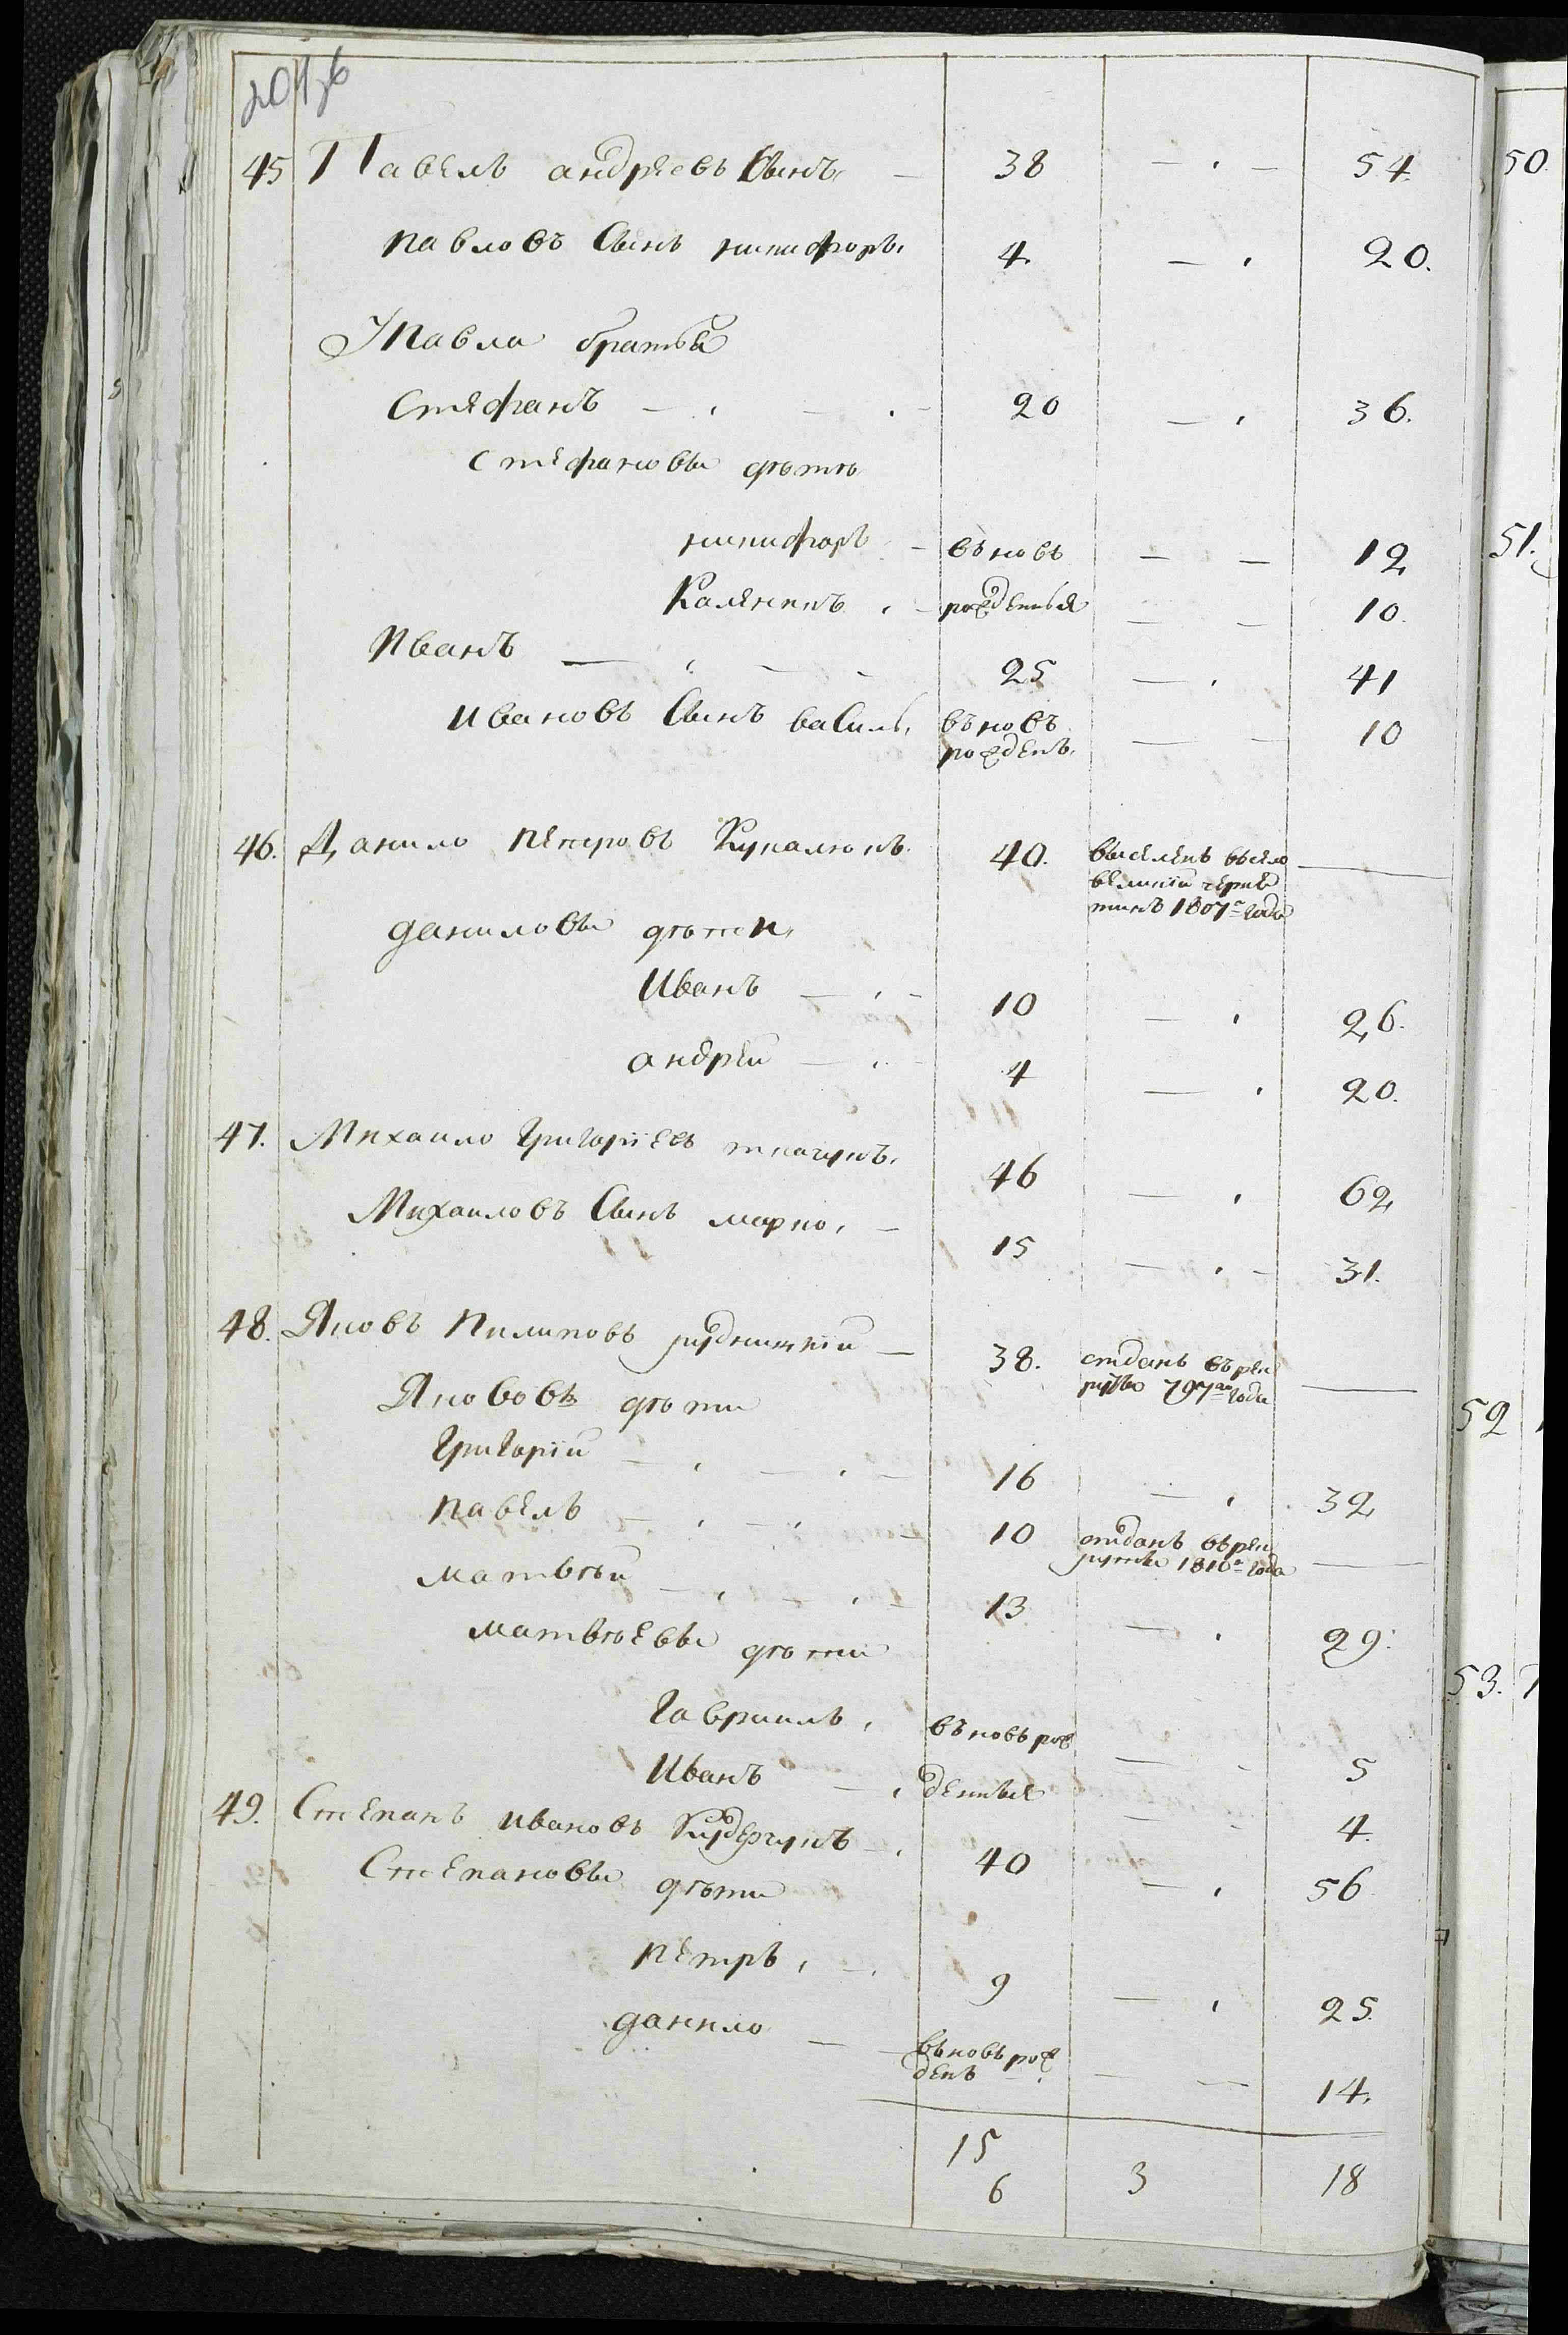 45 Павелъ андреевъ Сынъ 38 54
павловъ Сынъ никифоръ 4. 20.
У Павла братья
Стефанъ 20 36.
стефановы дѣти
никифоръ въновь 12
Каленикъ рожденныя 10.
Иванъ 25 41
Ивановъ Сынъ василь въновь 10
рожденъ
46. Данило Петровъ 40. выселенъ въсело
великій черня
тинъ 1807г года
даниловы дѣти
Иванъ 10 26.
андрей 4 20.
47. Михаило Григоріевъ ткачукъ 46 62
Михаиловъ Сынъ марко 15 31.
48. Яковъ Пилиповъ рудницкій 38. отданъ върек
руты 797го года
Якововы дѣти
Григорій 16 32
павелъ 10 отданъ върек
руты 1810г года
матвѣй 13 29.
матвѣевы дѣти
Гавриилъ въновь рож 5
Иванъ денныя 4.
49. Степанъ ивановъ Кудерчукъ 40 56
Степановы дѣти
петръ 9 25.
данило въновь рож 14.
денъ
15
6 3 18
50.
51.
52
53.